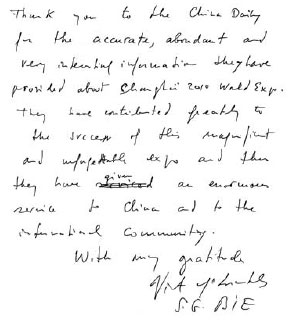 Thank you to the China Daily
for the accurate, abundant and
very interesting information they have
provided about Shanghai 2010 World Expo.
They have contributed greatly to
the success of this magnificent
and unforgettable expo and then
they have given an enormous
service to China and to the
international community.
With my gratitude
S.G. BIE